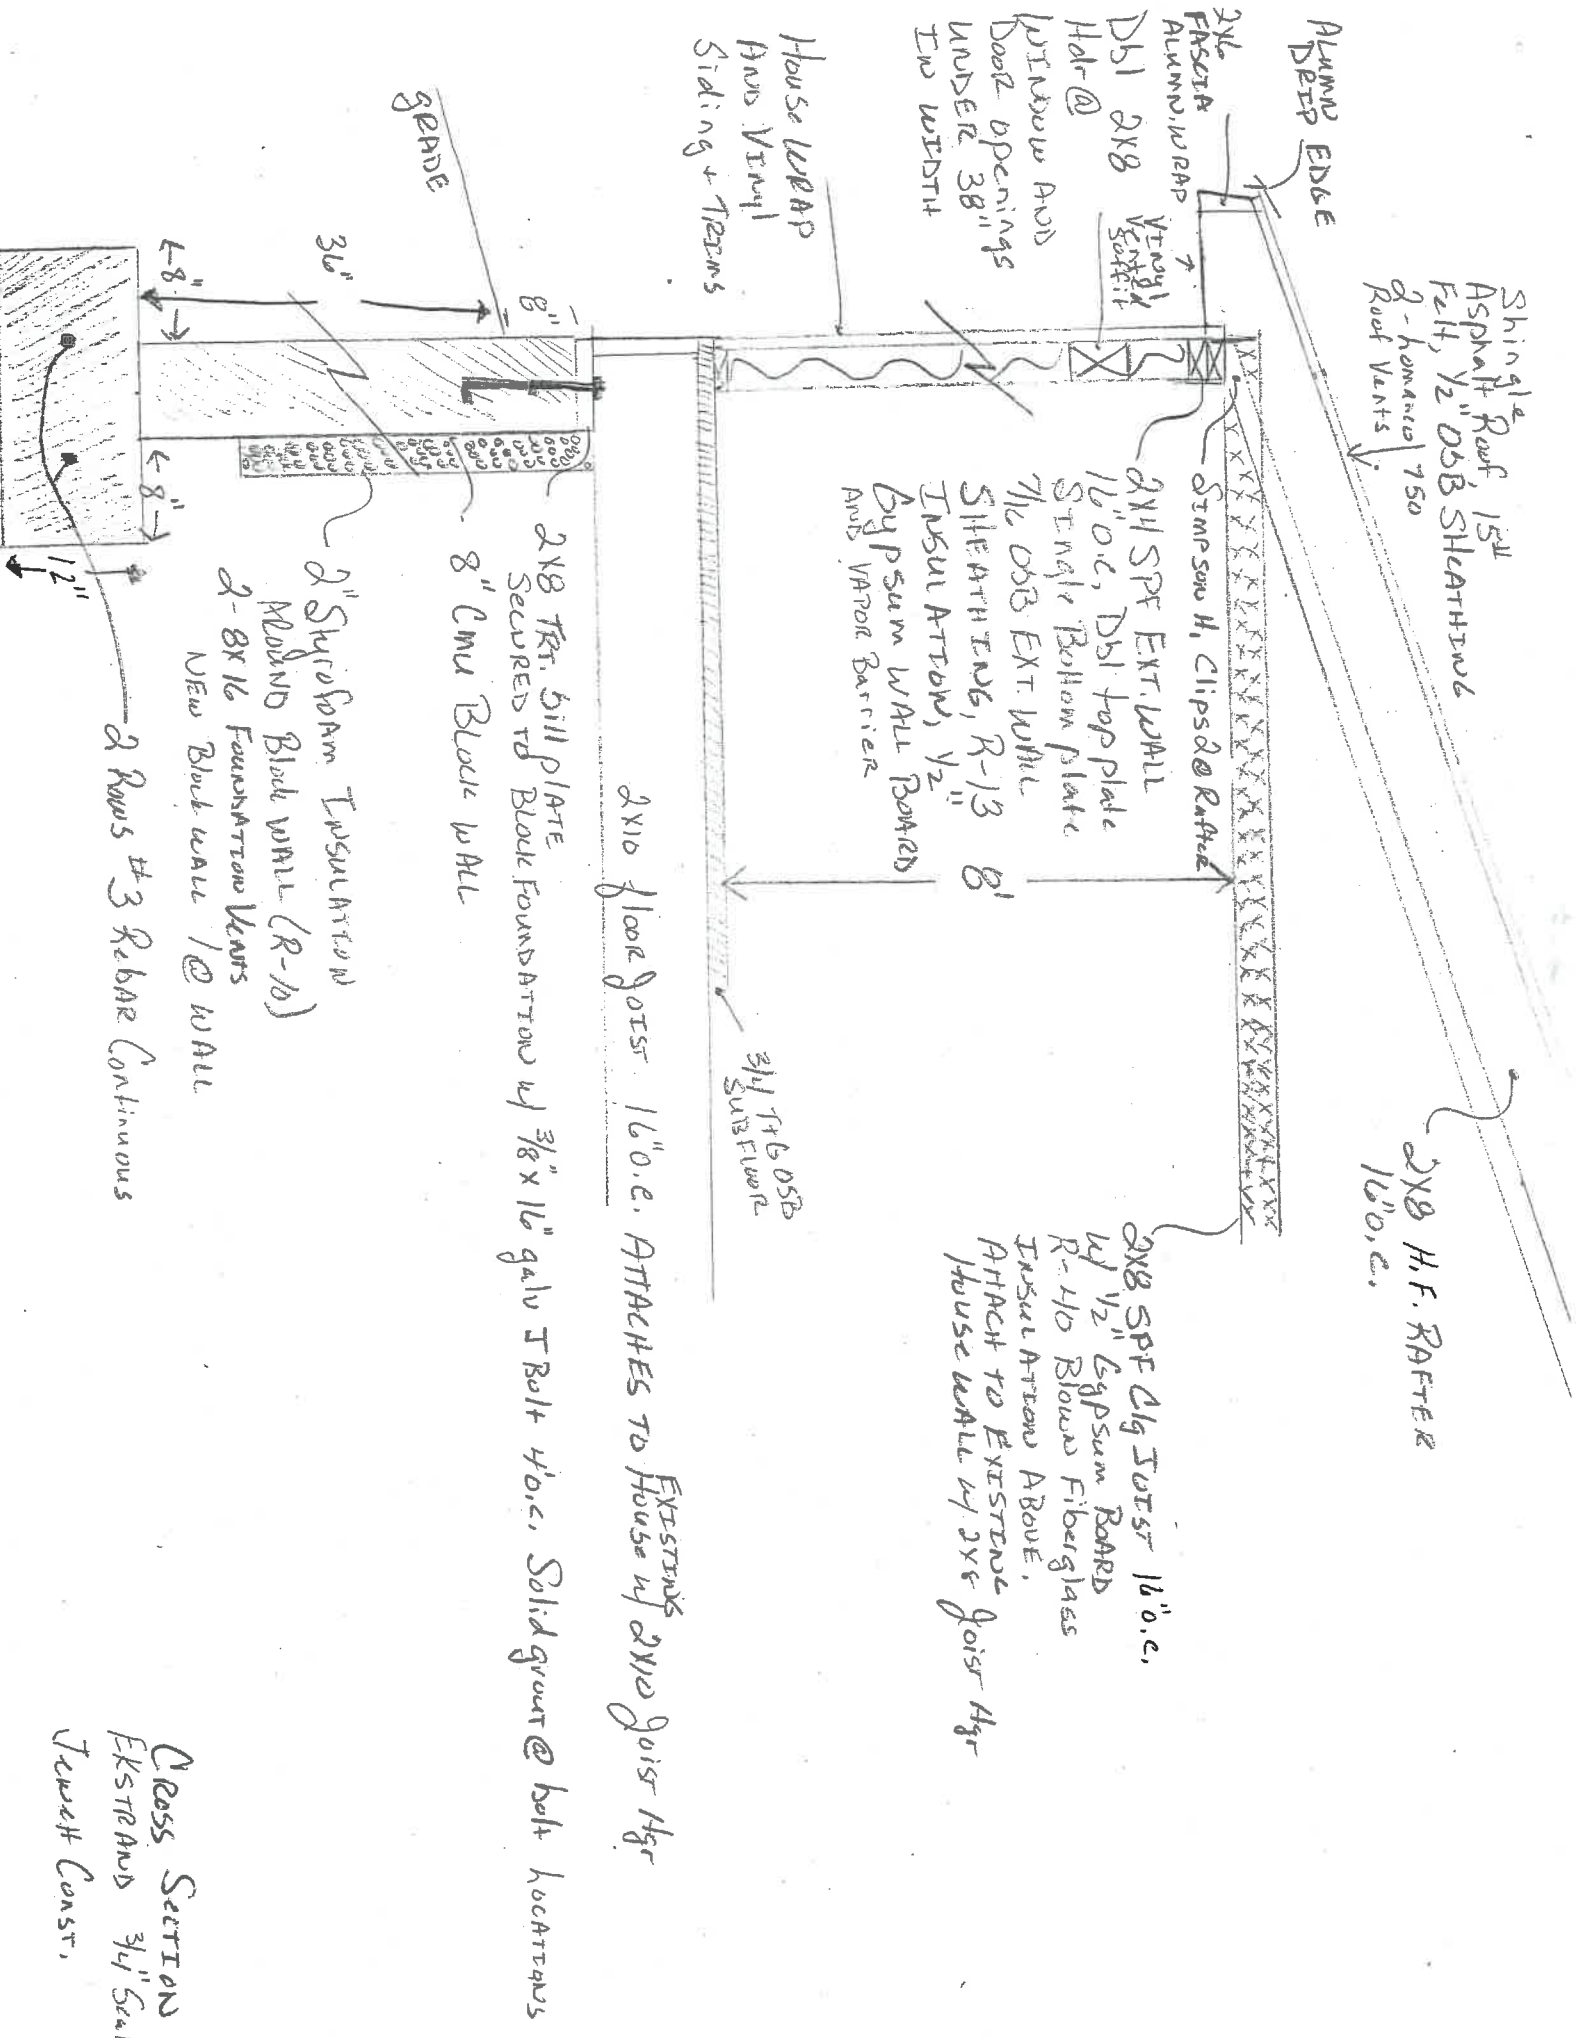 Shingle
Asphalt Roof, 15#
Felt, 1/2" OSB SHEATHING
2-
Roof Vents
750
ALUMN
DRIP EDGE
2x6
FASCIA
ALUMN. WRAP
Vinyl
Vented
Soffit
Dbl 2x8
Hdr @
WINDOW AND
DOOR OPENINGS
UNDER 38"
IN WIDTH
House WRAP
AND Vinyl
Siding + TRIMS
GRADE
2x8 H.F. RAFTER
16" O.C.
Simpson H. Clips 2@ RAFTER
2x4 SPF EXT. WALL
16" O.C., Dbl top plate
Single Bottom plate
7/16 OSB EXT. WALL
SHEATHING, R-13
INSULATION, 1/2"
Gypsum WALL BOARD
AND VAPOR Barrier
8'
2x8 SPF Clg JOIST 16" O.C.
w/ 1/2" Gypsum BOARD
R-40 Blown Fiberglass
INSULATION ABOVE.
ATTACH TO EXISTING
House WALL w/ 2x8 Joist Hgr
3/4 T+G OSB
SUBFLOOR
2x10 floor Joist 16" O.C. ATTACHES TO EXISTING House w/ 2x10 Joist Hgr
2x8 TRT. Sill plATE
SECURED TO Block FOUNDATION w/ 3/8" x 16" galv J Bolt 4' o.c. Solid grout @ bolt LOCATIONS
8" Cmu Block WALL
2" Styrofoam INSULATION
AROUND Block WALL (R-10)
2-8x16 FOUNDATION Vents
NEW Block WALL 1@ WALL
8"
36"
8"
8"
12"
2 Rows #3 RebAR Continuous
CROSS SECTION
EKSTRAND 3/4"
Const.